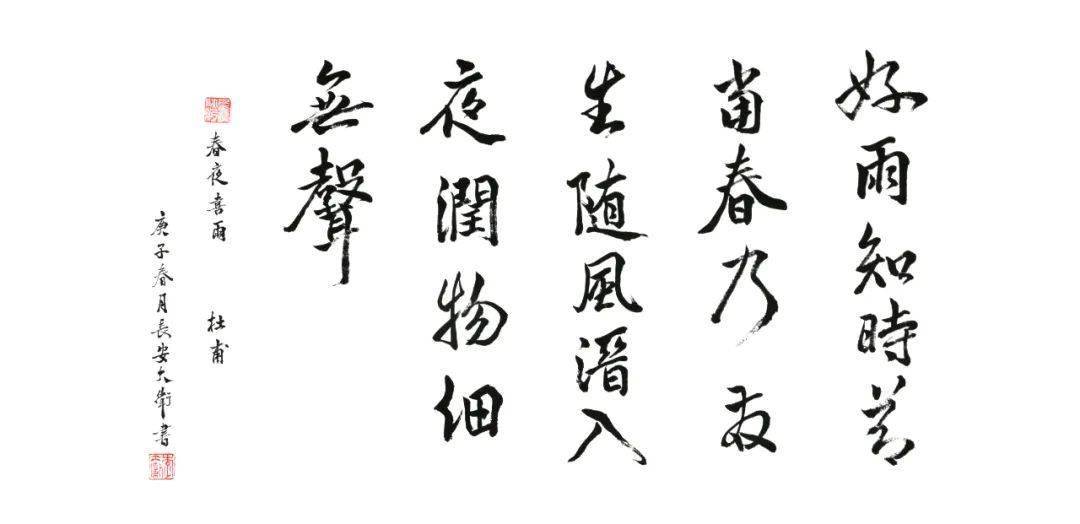 好雨知時節
當春乃發
生随風潛入
夜潤物細
無聲
春夜喜雨 杜甫
庚子春月長安大衛書